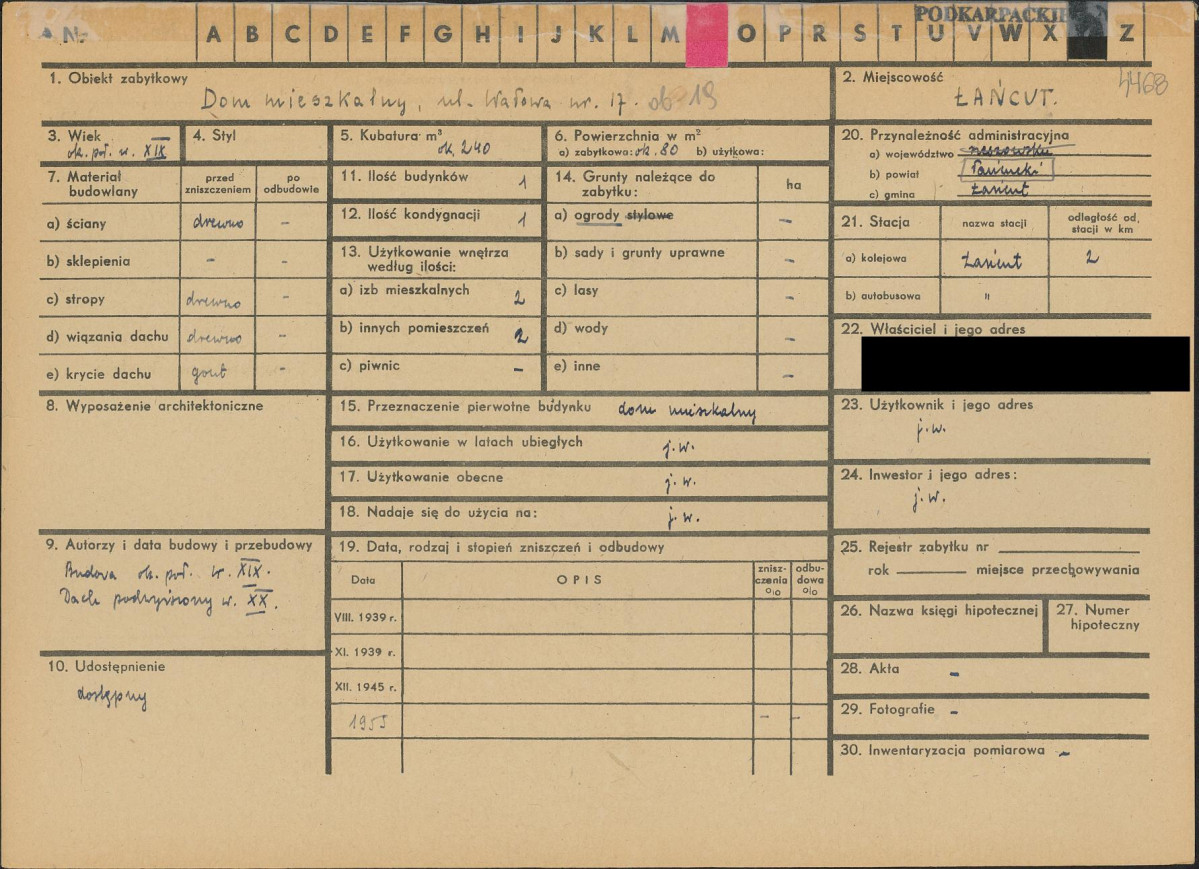 PODKARPACKIE
Nr A B C D E F G H I J K L M O P R S T U V W X Z
1. Obiekt zabytkowy
Dom mieszkalny, ul. Wałowa nr. 17. ob 19
2. Miejscowość
4468
ŁAŃCUT.
3. Wiek
ok. poł. w. XIX
4. Styl
5. Kubatura m³
ok. 240
6. Powierzchnia w m²
a) zabytkowa: ok. 80 b) użytkowa:
7. Materiał budowlany
przed zniszczeniem
po odbudowie
a) ściany drewno -
b) sklepienia - -
c) stropy drewno -
d) wiązania dachu drewno -
e) krycie dachu gont -
8. Wyposażenie architektoniczne
9. Autorzy i data budowy i przebudowy
Budowa ok. poł. w. XIX.
Dach podwyższony w. XX.
10. Udostępnienie
dostępny
11. Ilość budynków 1
12. Ilość kondygnacji 1
13. Użytkowanie wnętrza
według ilości:
a) izb mieszkalnych 2
b) innych pomieszczeń 2
c) piwnic -
14. Grunty należące do
zabytku:
ha
a) ogrody stylowe -
b) sady i grunty uprawne -
c) lasy -
d) wody -
e) inne -
15. Przeznaczenie pierwotne budynku dom mieszkalny
16. Użytkowanie w latach ubiegłych j.w.
17. Użytkowanie obecne j.w.
18. Nadaje się do użycia na: j.w.
19. Data, rodzaj i stopień zniszczeń i odbudowy
Data OPIS znisz-czenia o/o odbu-dowa o/o
VIII. 1939 r.
XI. 1939 r.
XII. 1945 r.
1955 - -
20. Przynależność administracyjna
a) województwo rzeszowskie
b) powiat Łańcucki
c) gmina Łańcut
21. Stacja nazwa stacji odległość od. stacji w km
a) kolejowa Łańcut 2
b) autobusowa "
22. Właściciel i jego adres
23. Użytkownik i jego adres
j.w.
24. Inwestor i jego adres:
j.w.
25. Rejestr zabytku nr
rok miejsce przechowywania
26. Nazwa księgi hipotecznej
27. Numer
hipoteczny
28. Akta -
29. Fotografie -
30. Inwentaryzacja pomiarowa -